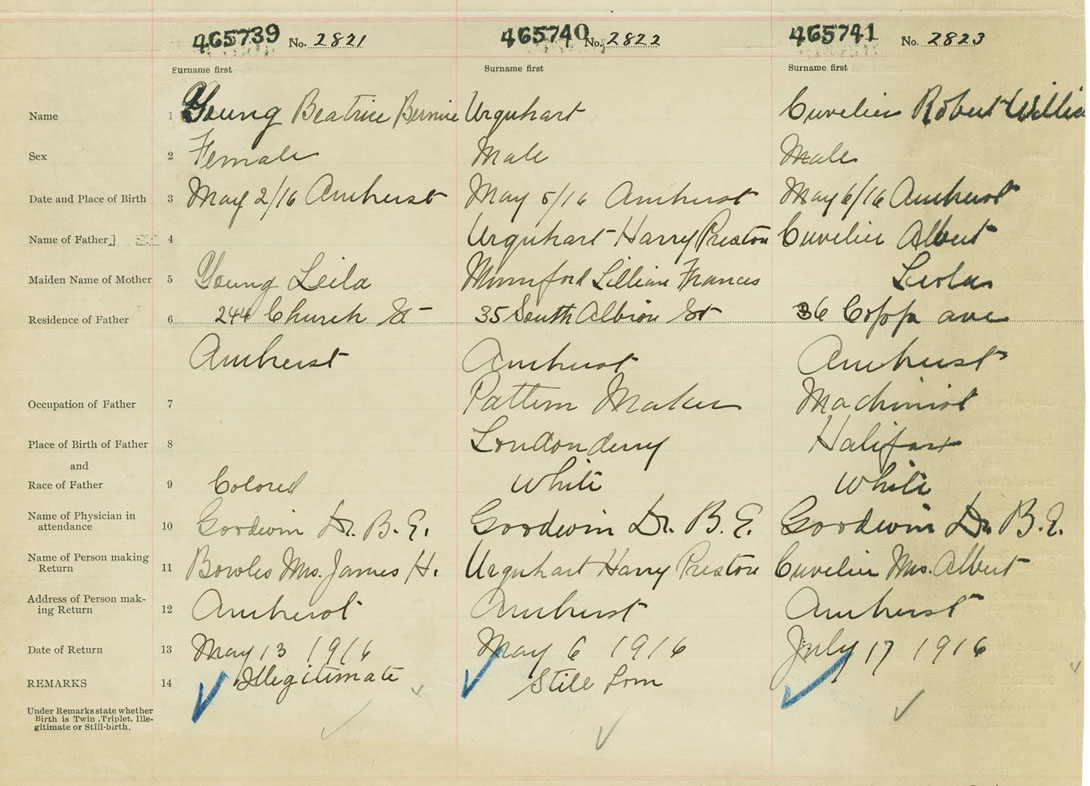 465739 No. 2821 465740 No. 2822 465741 No. 2823
Surname first Surname first Surname first
Name 1 Young Beatrice Bernice Urquhart Cuvelier Robert Willia
Sex 2 Female Male Male
Date and Place of Birth 3 May 2/16 Amherst May 5/16 Amherst May 6/16 Amherst
Name of Father 4 Urquhart Harry Preston Cuvelier Albert
Maiden Name of Mother 5 Young Leila Mumford Lillian Frances Leola
Residence of Father 6 244 Church St 35 South Albion St 36 Copp ave
Amherst Amherst Amherst
Occupation of Father 7 Pattern Maker Machinist
Place of Birth of Father 8 Londonderry Halifax
and
Race of Father 9 Colored White White
Name of Physician in
attendance 10 Goodwin Dr. B. E. Goodwin Dr. B. E. Goodwin Dr. B. E.
Name of Person making
Return 11 Bowles Mrs. James H. Urquhart Harry Preston Cuvelier Mrs. Albert
Address of Person mak-
ing Return 12 Amherst Amherst Amherst
Date of Return 13 May 13 1916 May 6 1916 July 17 1916
REMARKS 14 Illegitimate Still born
Under Remarks state whether
Birth is Twin, Triplet, Ille-
gitimate or Still-birth.